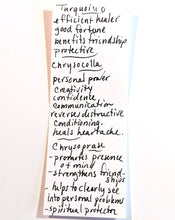 Turquoise
efficient healer
good fortune
benefits friendship
protective
Chrysocolla
personal power
creativity
confidence
communication
reverses destructive
conditioning.
heals heartache.
Chrysoprase
-promotes presence
of mind
-strengthens friend-
ships
- helps to clearly see
into personal problems
-spiritual protector